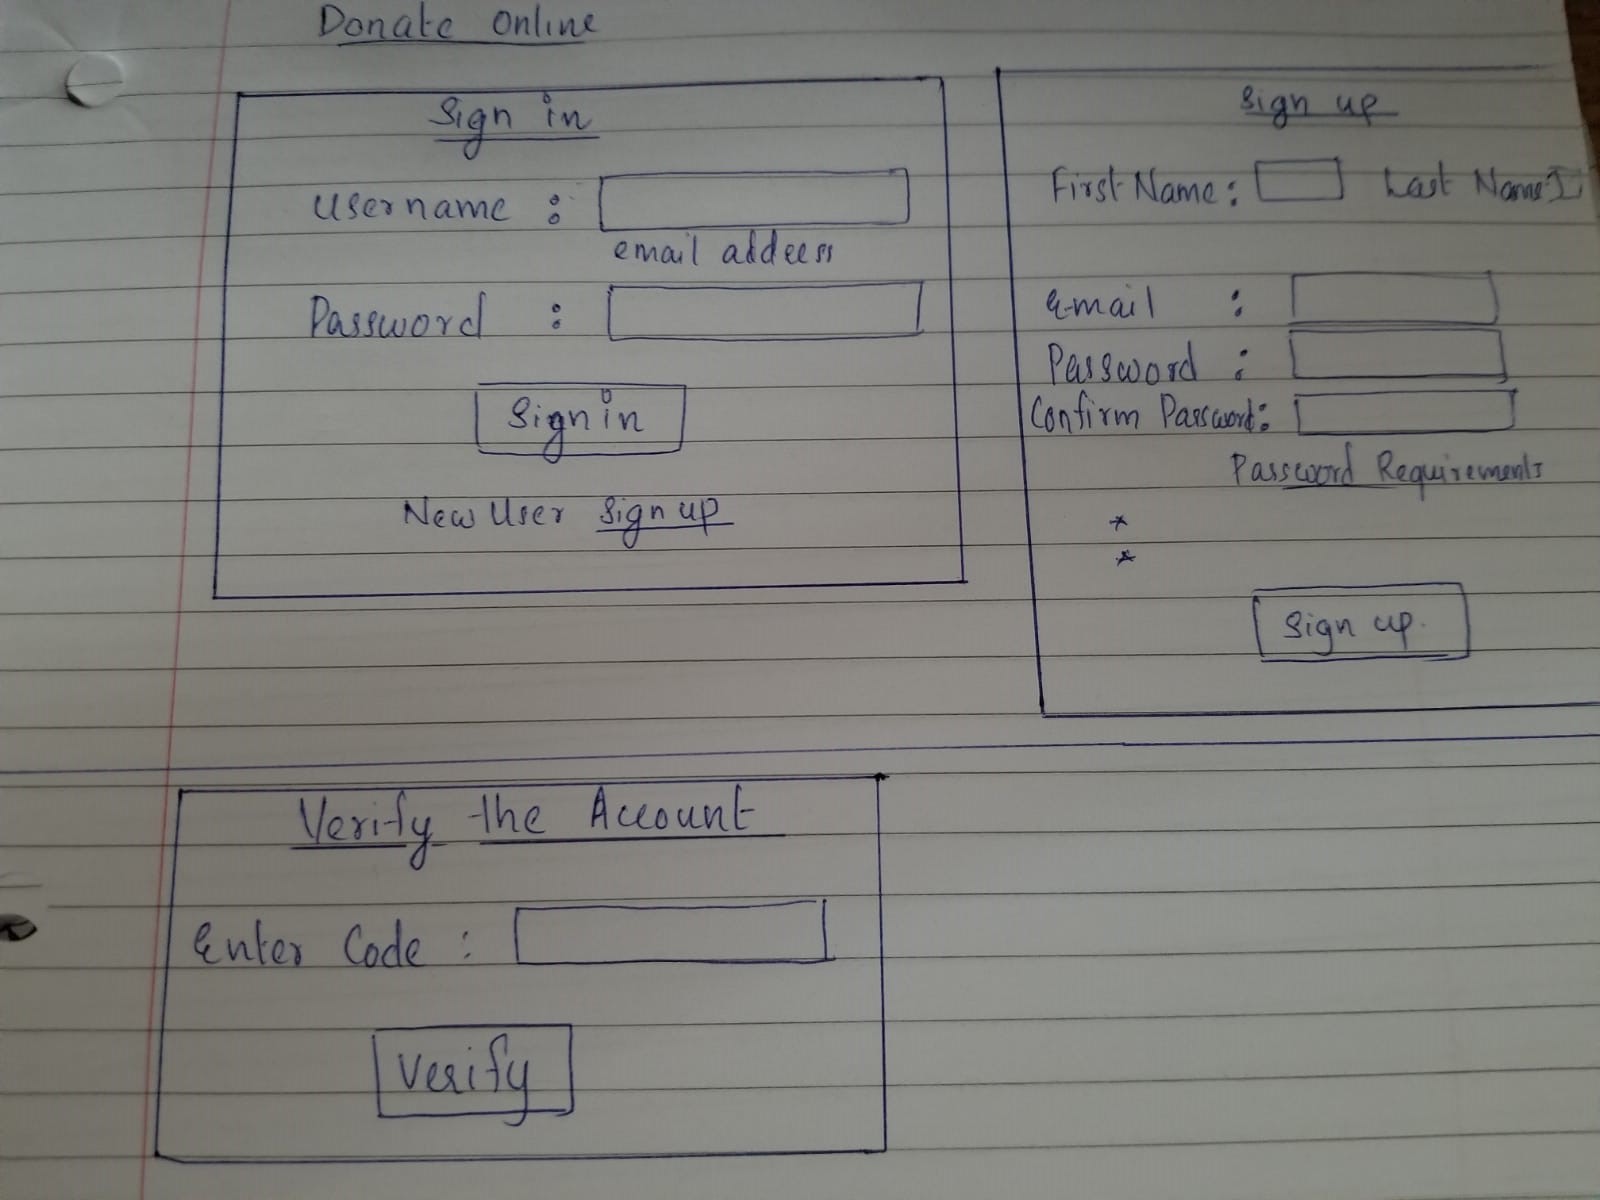 Donate Online
Sign in
Username :
email address
Password :
Sign in
New User Sign up
Sign up
First Name : Last Name
E-mail :
Password :
Confirm Password :
Password Requirements
*
*
Sign up
Verify the Account
Enter Code :
Verify